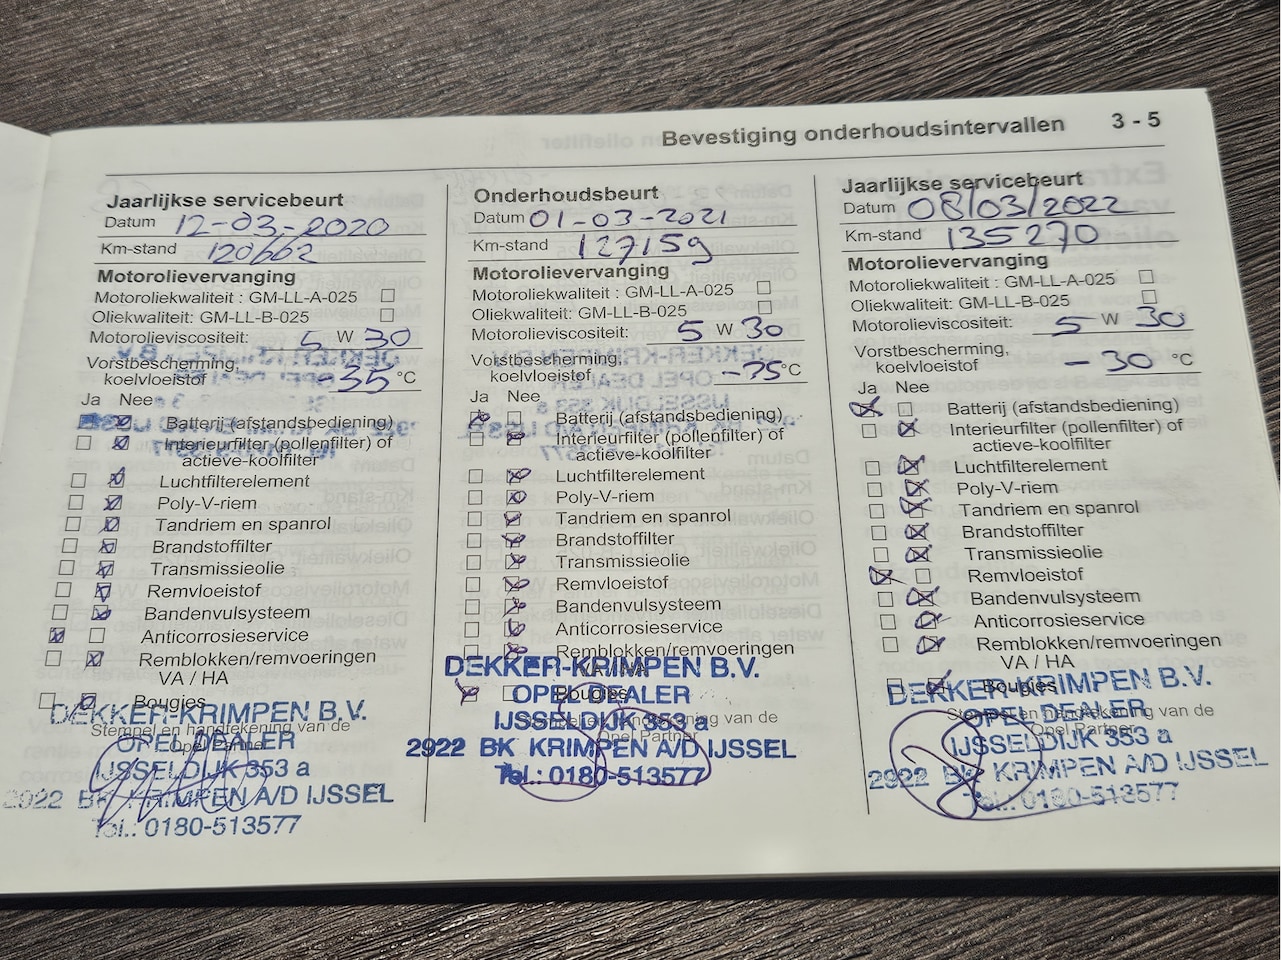 Bevestiging onderhoudsintervallen 3 - 5
Jaarlijkse servicebeurt
Datum 12-03-2020
Km-stand 120662
Motorolievervanging
Motoroliekwaliteit : GM-LL-A-025
Oliekwaliteit: GM-LL-B-025
Motorolieviscositeit: 5 W 30
Vorstbescherming,
koelvloeistof -35 °C
Ja Nee
Batterij (afstandsbediening)
Interieurfilter (pollenfilter) of
actieve-koolfilter
Luchtfilterelement
Poly-V-riem
Tandriem en spanrol
Brandstoffilter
Transmissieolie
Remvloeistof
Bandenvulsysteem
Anticorrosieservice
Remblokken/remvoeringen
VA / HA
Bougies
Stempel en handtekening van de
Opel Partner
DEKKER-KRIMPEN B.V.
OPEL DEALER
IJSSELDIJK 353 a
2922 BK KRIMPEN A/D IJSSEL
Tel.: 0180-513577
Onderhoudsbeurt
Datum 01-03-2021
Km-stand 127159
Motorolievervanging
Motoroliekwaliteit : GM-LL-A-025
Oliekwaliteit: GM-LL-B-025
Motorolieviscositeit: 5 W 30
Vorstbescherming,
koelvloeistof °C
Ja Nee
Batterij (afstandsbediening)
Interieurfilter (pollenfilter) of
actieve-koolfilter
Luchtfilterelement
Poly-V-riem
Tandriem en spanrol
Brandstoffilter
Transmissieolie
Remvloeistof
Bandenvulsysteem
Anticorrosieservice
Remblokken/remvoeringen
VA / HA
Bougies
Stempel en handtekening van de
Opel Partner
DEKKER-KRIMPEN B.V.
OPEL DEALER
IJSSELDIJK 353 a
2922 BK KRIMPEN A/D IJSSEL
Tel.: 0180-513577
Jaarlijkse servicebeurt
Datum 08/03/2022
Km-stand 135270
Motorolievervanging
Motoroliekwaliteit : GM-LL-A-025
Oliekwaliteit: GM-LL-B-025
Motorolieviscositeit: 5 W 30
Vorstbescherming,
koelvloeistof -30 °C
Ja Nee
Batterij (afstandsbediening)
Interieurfilter (pollenfilter) of
actieve-koolfilter
Luchtfilterelement
Poly-V-riem
Tandriem en spanrol
Brandstoffilter
Transmissieolie
Remvloeistof
Bandenvulsysteem
Anticorrosieservice
Remblokken/remvoeringen
VA / HA
Bougies
Stempel en handtekening van de
Opel Partner
DEKKER-KRIMPEN B.V.
OPEL DEALER
IJSSELDIJK 353 a
2922 BK KRIMPEN A/D IJSSEL
Tel.: 0180-513577